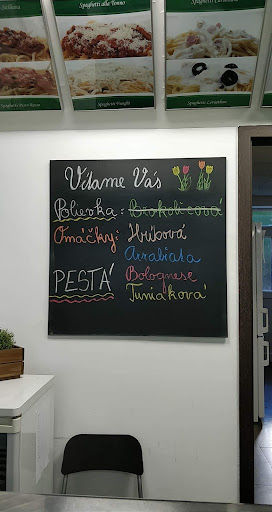 Spaghetti alla Tonno
Spaghetti Carbonara
Spaghetti Pesto Rosso
Spaghetti Funghi
Vítame Vás
Polievka: Brokolicová
Omáčky: Hríbová
Arrabiata
PESTÁ Bolognese
Tuniaková